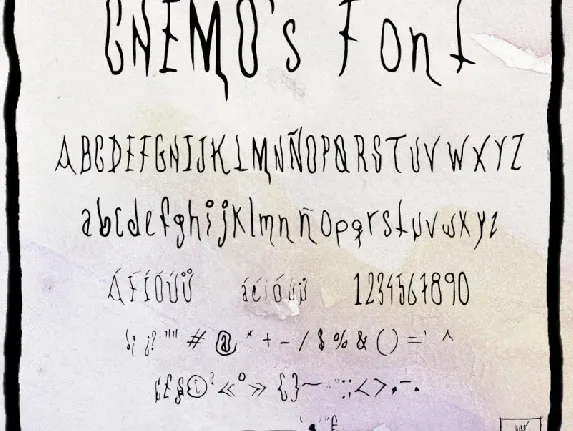 GNEMO's Font
ABCDEFGHIJKLMNÑOPQRSTUVWXYZ
abcdefghijklmnñopqrstuvwxyz
ÁÉÍÓÚÜ áéíóúü 1234567890
# @ * + - / $ % & ( ) = ' ^
« º » { } ~ < >